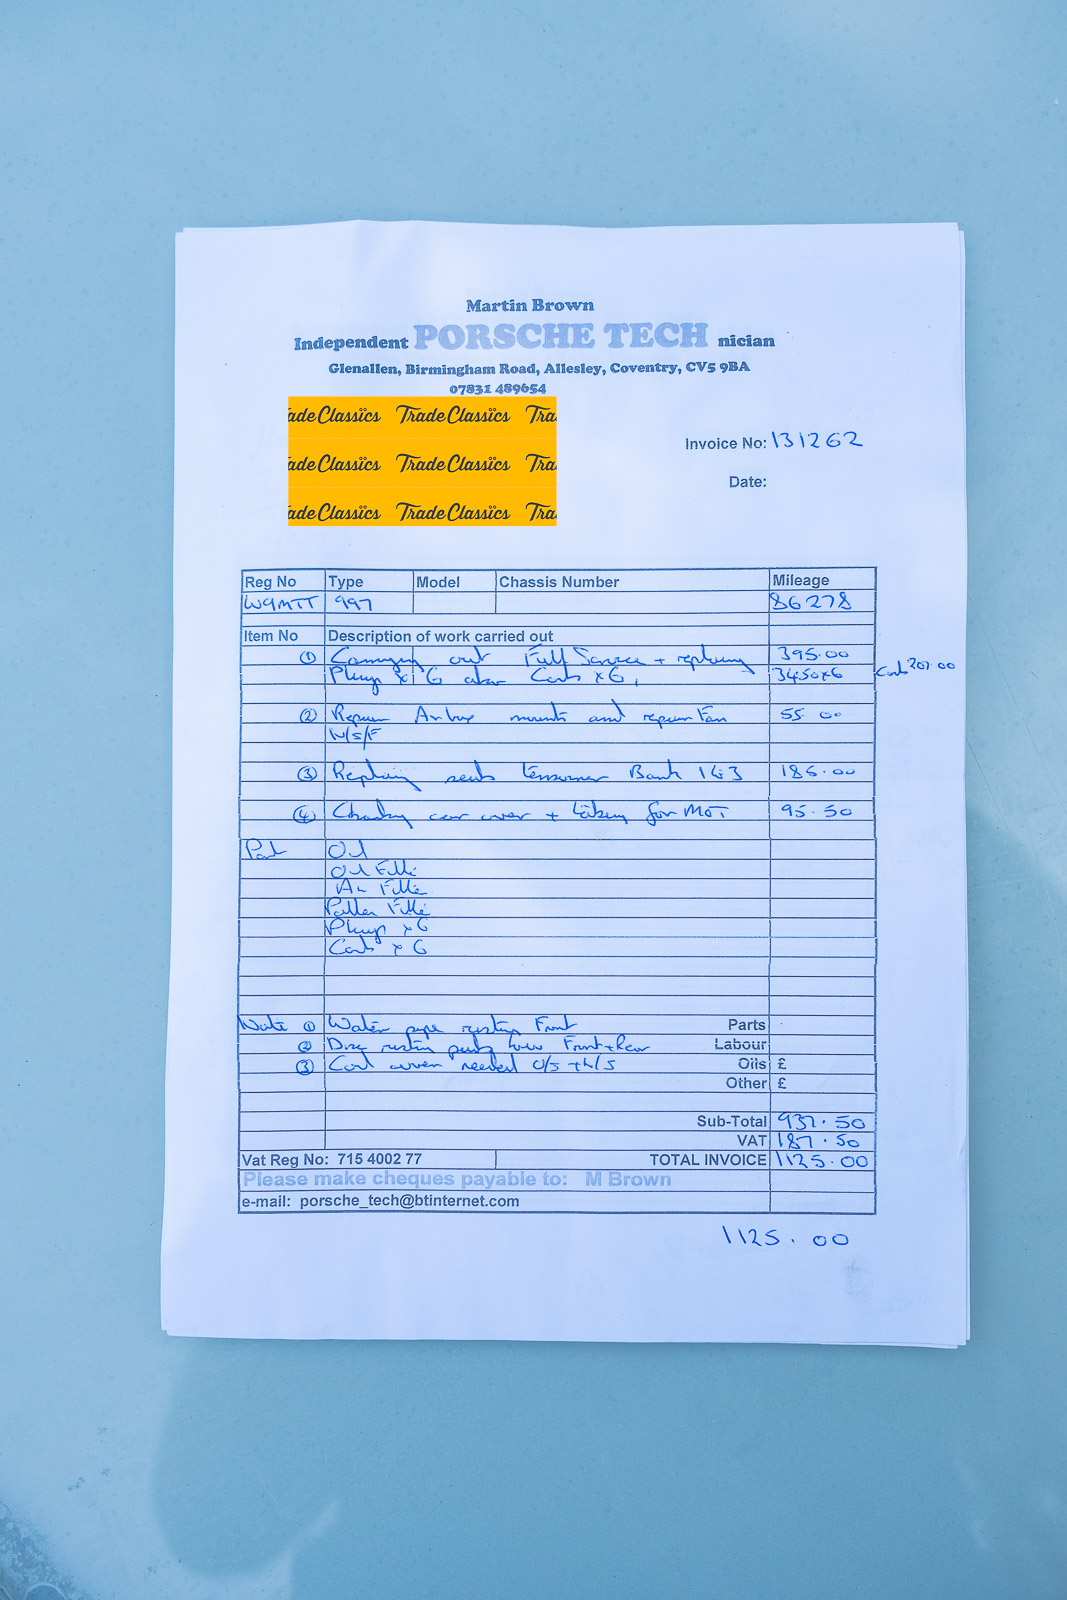 Martin Brown
Independent PORSCHE TECH nician
Glenallen, Birmingham Road, Allesley, Coventry, CV5 9BA
07831 489654
TradeClassics TradeClassics Tra
TradeClassics TradeClassics Tra
TradeClassics TradeClassics Tra
Invoice No: 131262
Date:
Reg No Type Model Chassis Number Mileage
W9MTT 997 86278
Item No Description of work carried out
① Carrying out Full Service + replacing 395.00
Plugs x 6 also Coils x 6, 34.50x6 Coils 207.00
② Repair mounts and repair Fan 55 00
N/S/F
③ Replacing seals tensioner Bank 1&3 185.00
④ Checking car over + taking for MOT 95.50
Part Oil
Oil Filter
Air Filter
Pollen Filter
Plugs x 6
Coils x 6
Note ① Water pipe rusting Front Parts
② Disc rusting pads low Front + Rear Labour
③ Coil needed O/S + N/S Oils £
Other £
Sub-Total 937.50
VAT 187.50
Vat Reg No: 715 4002 77 TOTAL INVOICE 1125.00
Please make cheques payable to: M Brown
e-mail: porsche_tech@btinternet.com
1125.00